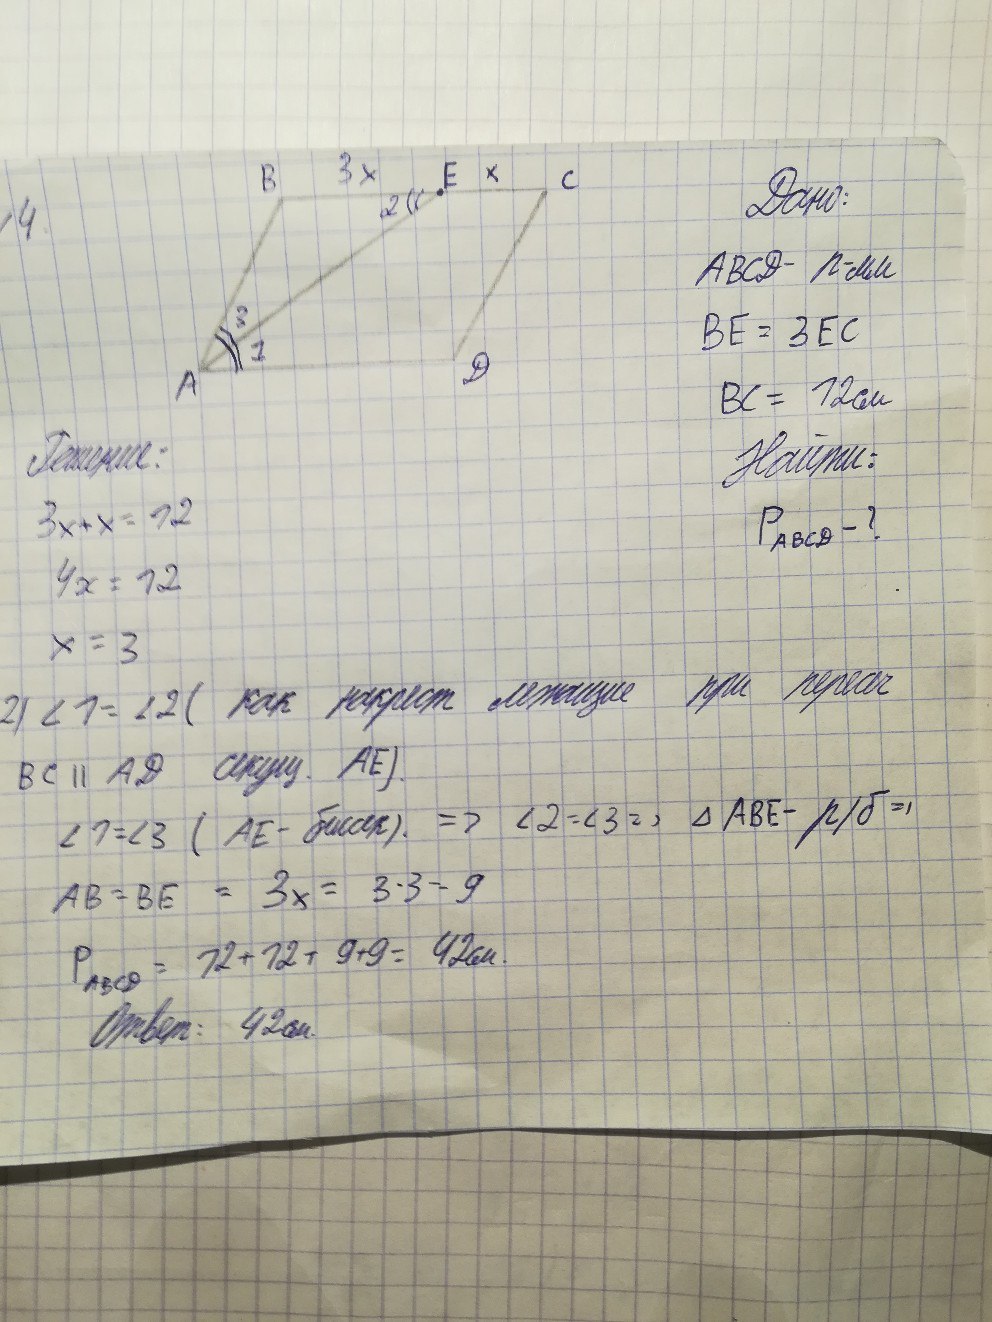 14.
B 3x E x C
2
3
1
A D
Дано:
ABCD- п-мм
BE = 3EC
BC = 12см
Найти:
PABCD - ?
Решение:
3x+x=12
4x = 12
x = 3
2) ∠1=∠2( как накрест лежащие при пересеч
BC || AD секущ. AE).
∠1=∠3 ( AE- биссек). => ∠2=∠3=> △ ABE- р/б =>
AB=BE = 3x = 3·3=9
PABCD = 12+12+ 9+9= 42см.
Ответ: 42см.